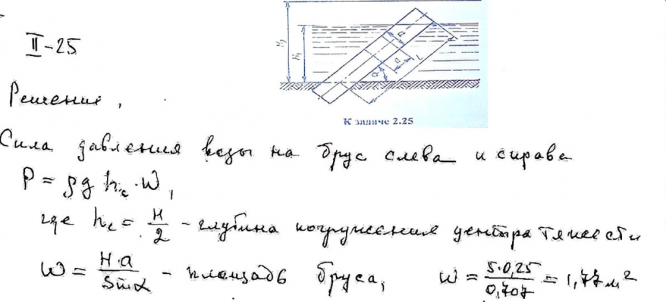 II-25
H₁ H α a a L
К задаче 2.25
Решение,
Сила давления воды на брус слева и справа
P = ρg h_c · ω,
где h_c = H/2 - глубина погружения центра тяжести
ω = H·a/Sinα - площадь бруса, ω = 5·0,25/0,707 = 1,77 м²